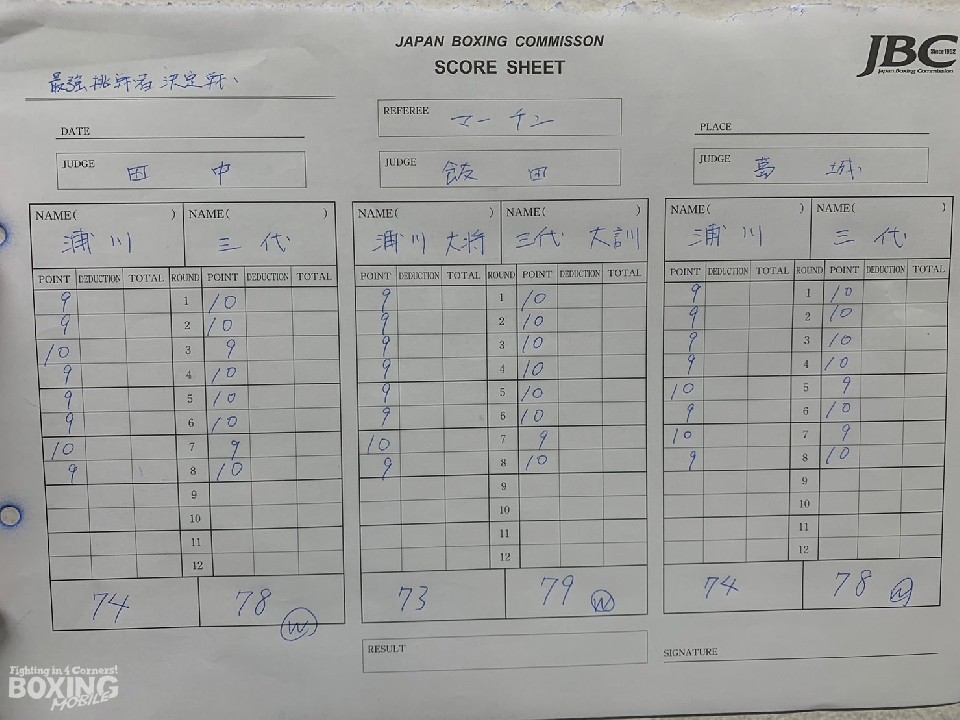 JAPAN BOXING COMMISSON
SCORE SHEET
JBC Since 1952
Japan Boxing Commission
最強挑戦者決定戦
DATE
REFEREE マーチン
PLACE
JUDGE 田中
JUDGE 飯田
JUDGE 葛城
NAME( ) NAME( )
浦川 三代
POINT DEDUCTION TOTAL ROUND POINT DEDUCTION TOTAL
9 1 10
9 2 10
10 3 9
9 4 10
9 5 10
9 6 10
10 7 9
9 8 10
9
10
11
12
74 78 W
NAME( ) NAME( )
浦川 大将 三代 大訓
POINT DEDUCTION TOTAL ROUND POINT DEDUCTION TOTAL
9 1 10
9 2 10
9 3 10
9 4 10
9 5 10
9 6 10
10 7 9
9 8 10
9
10
11
12
73 79 W
NAME( ) NAME( )
浦川 三代
POINT DEDUCTION TOTAL ROUND POINT DEDUCTION TOTAL
9 1 10
9 2 10
9 3 10
9 4 10
10 5 9
9 6 10
10 7 9
9 8 10
9
10
11
12
74 78 W
RESULT
SIGNATURE
Fighting in 4 Corners!
BOXING
MOBILE